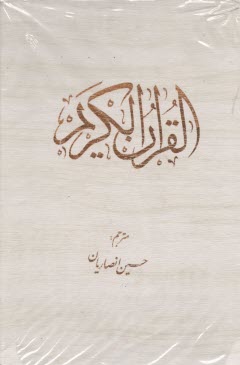 القرآن الكريم
مترجم:
حسین انصاریان